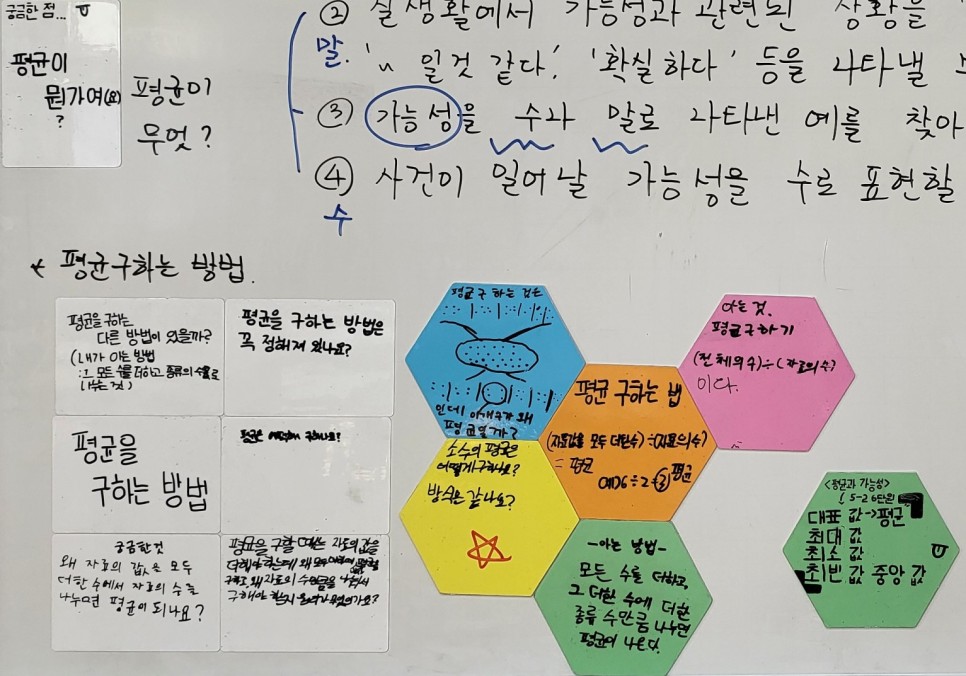 궁금한 점...
평균이
뭔가여(요)
?
평균이
무엇?
② 실생활에서 가능성과 관련된 상황을
말.
'~ 일것 같다.' '확실하다' 등을 나타낼
③ 가능성을 수와 말로 나타낸 예를 찾아
④ 사건이 일어날 가능성을 수로 표현할
수
* 평균구하는 방법.
평균을 구하는
다른 방법이 있을까?
(내가 아는 방법
: 모든 수를 더하고 종류의 수로
나누는 것)
평균을 구하는 방법은
꼭 정해져 있나요?
평균을
구하는 방법
평균은 어떻게 구하나요?
궁금한것
왜 자료의 값을 모두
더한 수에서 자료의 수를
나누면 평균이 되나요?
평균을 구할 때는 자료의 값을
더해야하는데 왜
구하고, 왜 자료의 수
구해야 하는지
평균 구하는 것은
인데 이개수가 왜
평균일까?
소수의 평균은
어떻게구하나요?
방식은 같나요?
평균 구하는 법
(자료값을 모두 더한수)÷(자료의수)
= 평균
예)6÷2=③평균
아는 것.
평균구하기
(전체의수)÷(자료의수)
이다.
-아는 방법-
모든 수를 더하고,
그 더한 수에 더한
종류 수만큼 나누면
평균이 나온다.
<평균과 가능성>
5-2 6단원
대표 값->평균
최대 값
최소 값
최빈 값 중앙 값